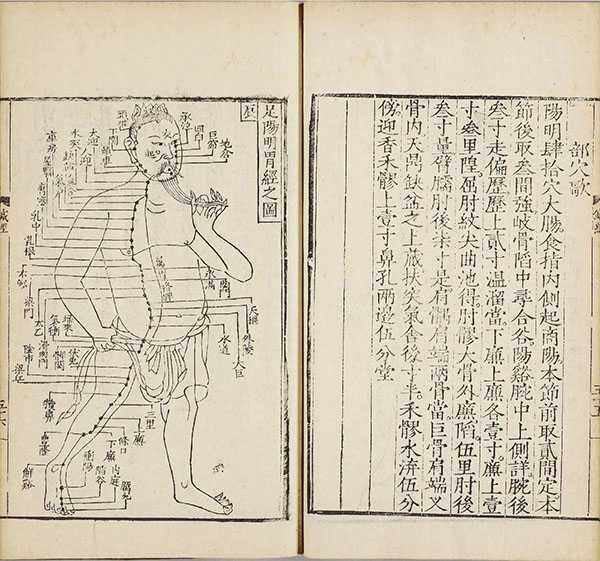 部穴歌
陽明肆拾穴大腸食指内側起商陽本節前取貳間定本
節後取叁間強岐骨陷中尋合谷陽谿腕中上側詳腕後
叁寸走偏歷歷上貳寸温溜當下廉上廉各壹寸廉上壹
寸叁里隍屈肘紋尖曲池得肘髎大骨外廉陷伍里肘後
叁寸量臂臑肘後柒寸是肩髃肩端兩骨當巨骨肩端叉
骨内天鼎缺盆之上藏扶突氣舍後寸半禾髎水溝伍分
傍迎香禾髎上壹寸鼻孔兩邊伍分堂
足陽明胃經之圖
地倉
巨窌
四白
承泣
頭維
下関
頰車
大迎
人迎
水突
乳中
乳根
不容
梁門
太乙
天樞
外陵
大巨
水道
氣衝
髀関
伏兎
陰市
梁丘
犢鼻
三里
條口
下廉
豐隆
解谿
衝陽
陷谷
内庭